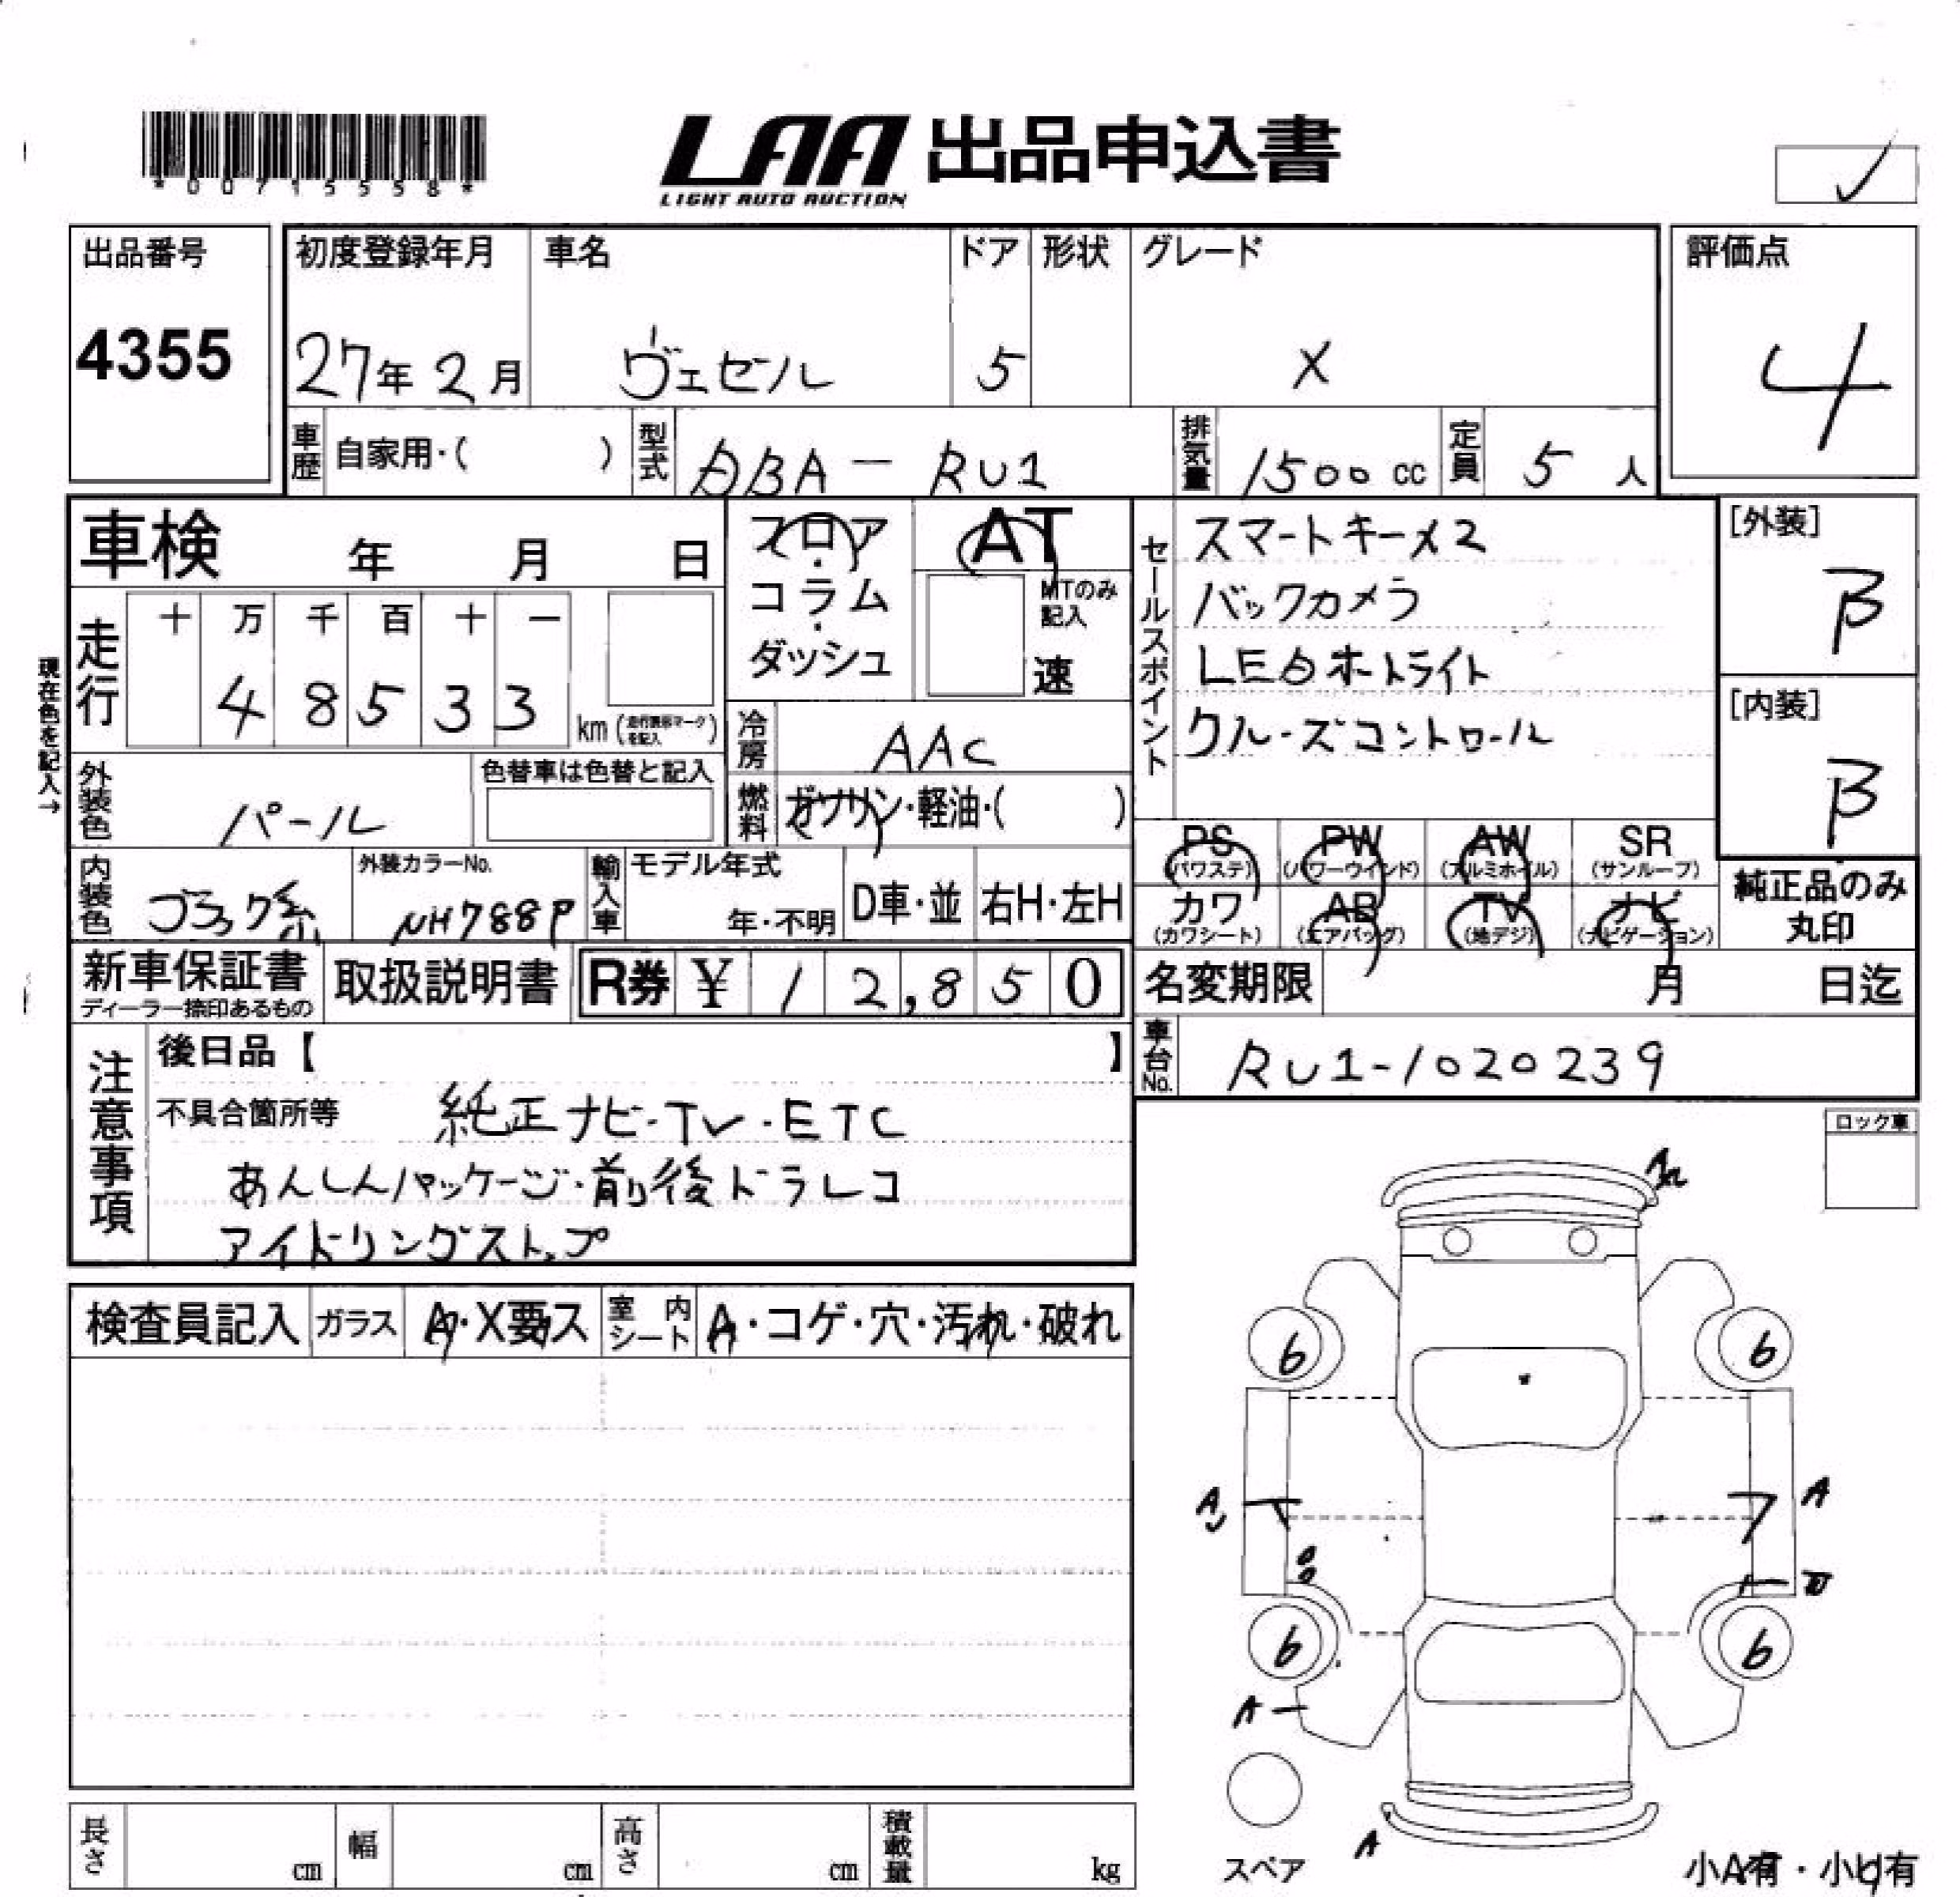 *00715558*
LAA 出品申込書
LIGHT AUTO AUCTION
出品番号
4355
初度登録年月
27年 2月
車名
ヴェゼル
ドア
5
形状
グレード
X
評価点
4
車歴
自家用・( )
型式
DBA－RU1
排気量
1500 cc
定員
5 人
車検 年 月 日
フロア・コラム・ダッシュ
AT
MTのみ記入
速
現在色を記入→
走行
十 万 千 百 十 一
4 8 5 3 3
km
冷房
AAC
燃料
ガソリン・軽油・( )
セールスポイント
スマートキーメ2
バックカメラ
LEDホトライト
クルーズコントロール
[外装]
B
[内装]
B
外装色
パール
色替車は色替と記入
内装色
ブラック系
外装カラーNo.
NH788P
輸入車
モデル年式
年・不明
D車・並
右H・左H
PS
(パワステ)
PW
(パワーウインド)
AW
(アルミホイル)
SR
(サンルーフ)
カワ
(カワシート)
AB
(エアバッグ)
TV
(地デジ)
ナビ
(ナビゲーション)
純正品のみ
丸印
新車保証書
ディーラー捺印あるもの
取扱説明書
R券 ¥ 12,850
名変期限 月 日迄
車台No.
RU1-1020239
注意事項
後日品【 】
不具合箇所等
純正ナビ・TV・ETC
あんしんパッケージ・前後ドラレコ
アイドリングストップ
ロック車
検査員記入
ガラス
A・X要ス
室内シート
A・コゲ・穴・汚れ・破れ
6
6
A
A
6
6
A
A
スペア
小A有・小U有
長さ cm
幅 cm
高さ cm
積載量 kg